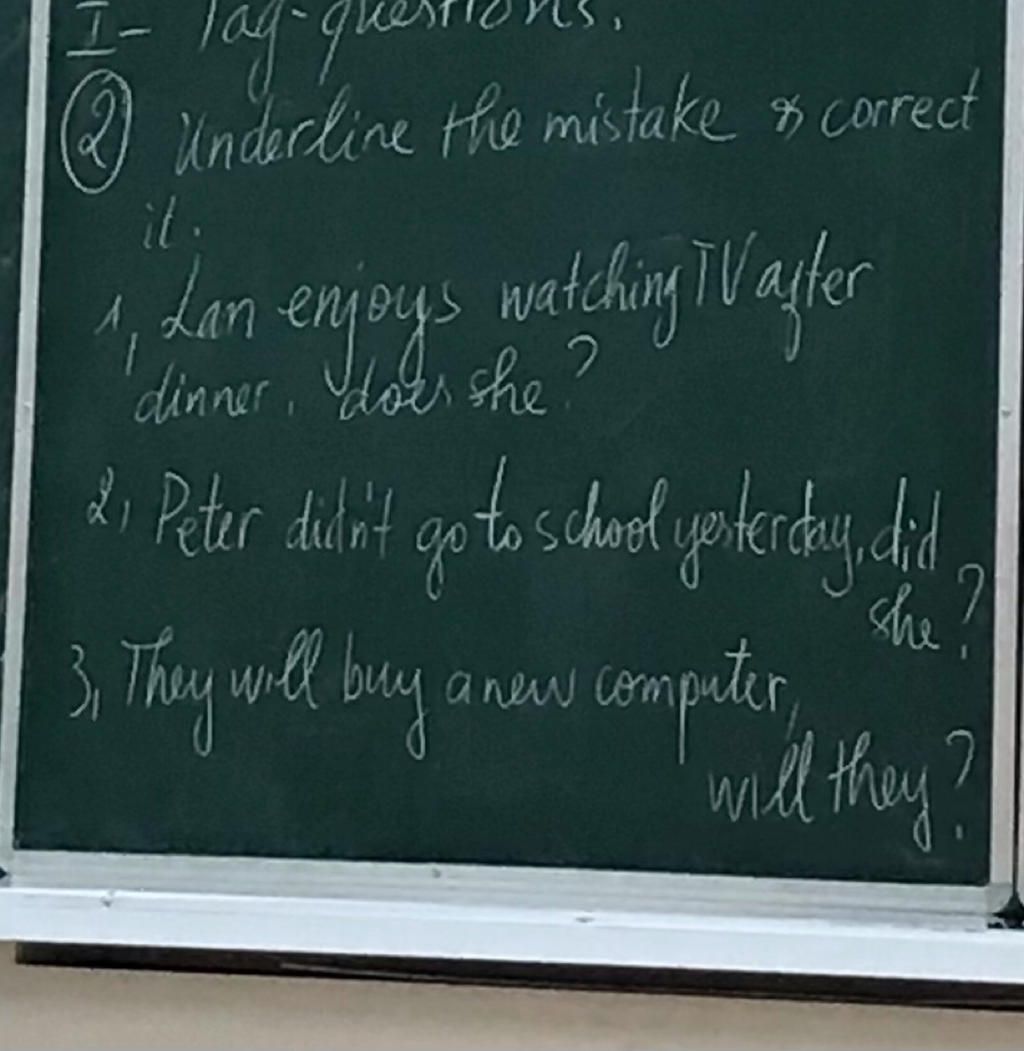 I- Tag-questions.
② Underline the mistake & correct
it.
1, Lan enjoys watching TV after
dinner, does she?
2, Peter didn't go to school yesterday, did
she?
3, They will buy a new computer,
will they?